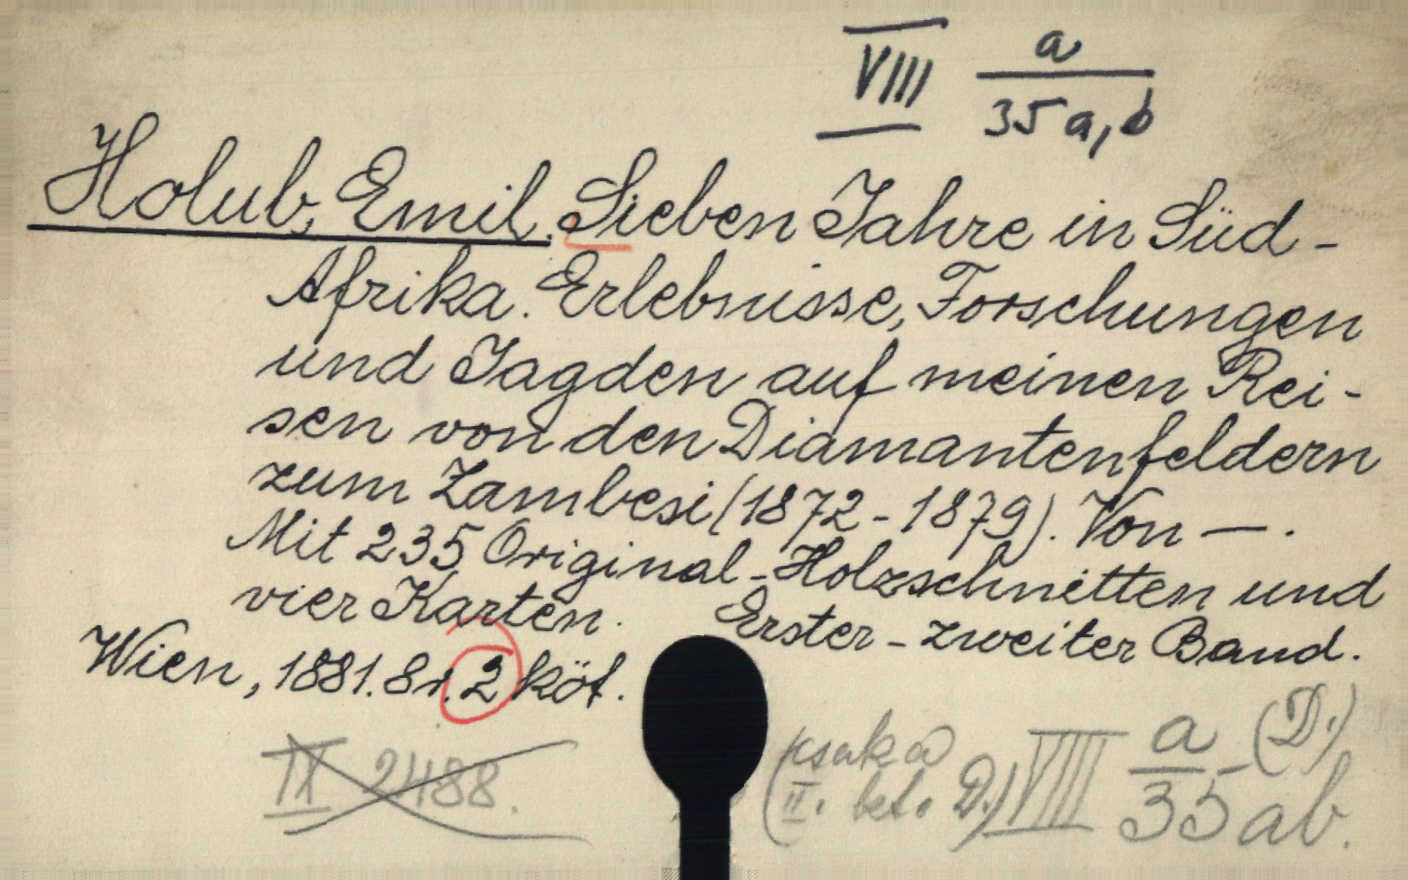 VIII a
35 a, b
Holub, Emil. Sieben Jahre in Süd-
Afrika. Erlebnisse, Forschungen
und Jagden auf meinen Rei-
sen von den Diamantenfeldern
zum Zambesi (1872-1879). Von —.
Mit 235 Original-Holzschnitten und
vier Karten. Erster-zweiter Band.
Wien, 1881. 8r. 2 köt.
IX 2488.
(csak a VIII a (D.)
II. bet. D.) 35 ab.